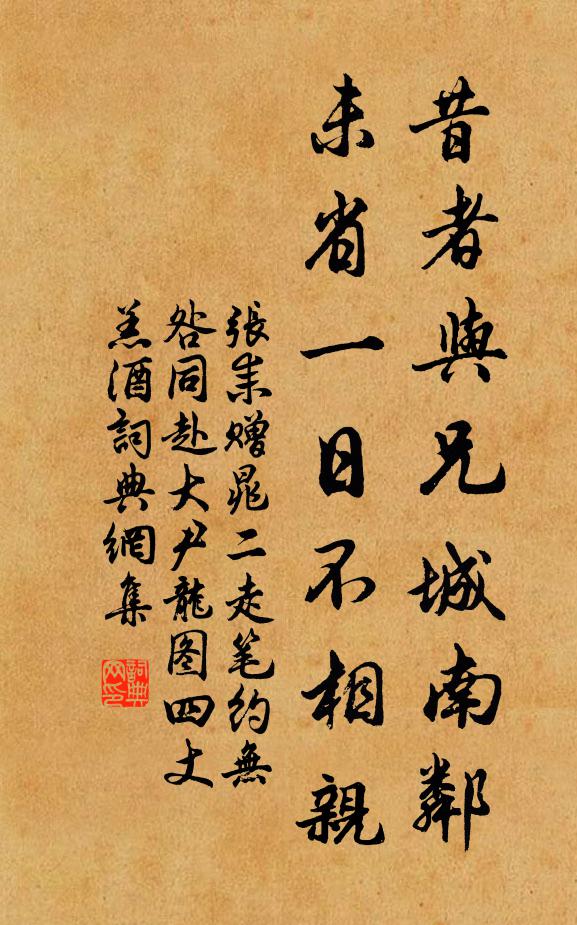 昔者與兄城南鄰
未省一日不相親
張耒贈晁二走笔約無
咎同赴大尹龍图四丈
羔酒詞典網集
詞典網印